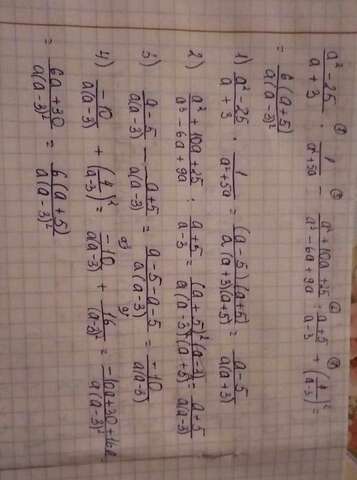 (a² - 25)/(a + 3) · 1/(a² + 5a) - (a² + 10a + 25)/(a² - 6a + 9a) : (a + 5)/(a - 3) + (4/(a - 3))² =
= 6(a + 5)/(a(a - 3)²)
1) (a² - 25)/(a + 3) · 1/(a² + 5a) = (a - 5)(a + 5)/(a(a + 3)(a - 5)) = (a - 5)/(a(a + 3))
2) (a² + 10a + 25)/(a² - 6a + 9a) : (a + 5)/(a - 3) = (a + 5)²(a - 3)/(a(a - 3)²(a + 5)) = (a + 5)/(a(a - 3))
3) (a - 5)/(a(a - 3)) - (a + 5)/(a(a - 3)) = (a - 5 - a - 5)/(a(a - 3)) = -10/(a(a - 3))
4) -10/(a(a - 3)) + (4/(a - 3))² = -10/(a(a - 3)) + 16/(a - 3)² = (-10a + 30 + 16a)/(a(a - 3)²)
= (6a + 30)/(a(a - 3)²) = 6(a + 5)/(a(a - 3)²)